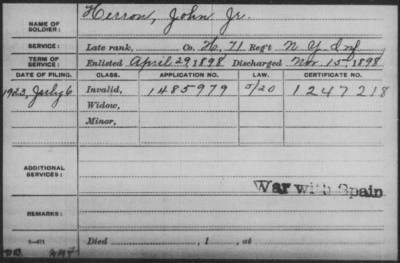 Herron, John Jr.
NAME OF SOLDIER:
SERVICE: Late rank, Co. H, 71 Reg't N. Y. Inf
TERM OF SERVICE: Enlisted April 29, 1898 Discharged Nov. 15, 1898
DATE OF FILING. CLASS. APPLICATION NO. LAW. CERTIFICATE NO.
1923, July 6 Invalid, 1485979 5/20 1247218
Widow,
Minor,
ADDITIONAL SERVICES:
War with Spain
REMARKS:
Died , 1 , at